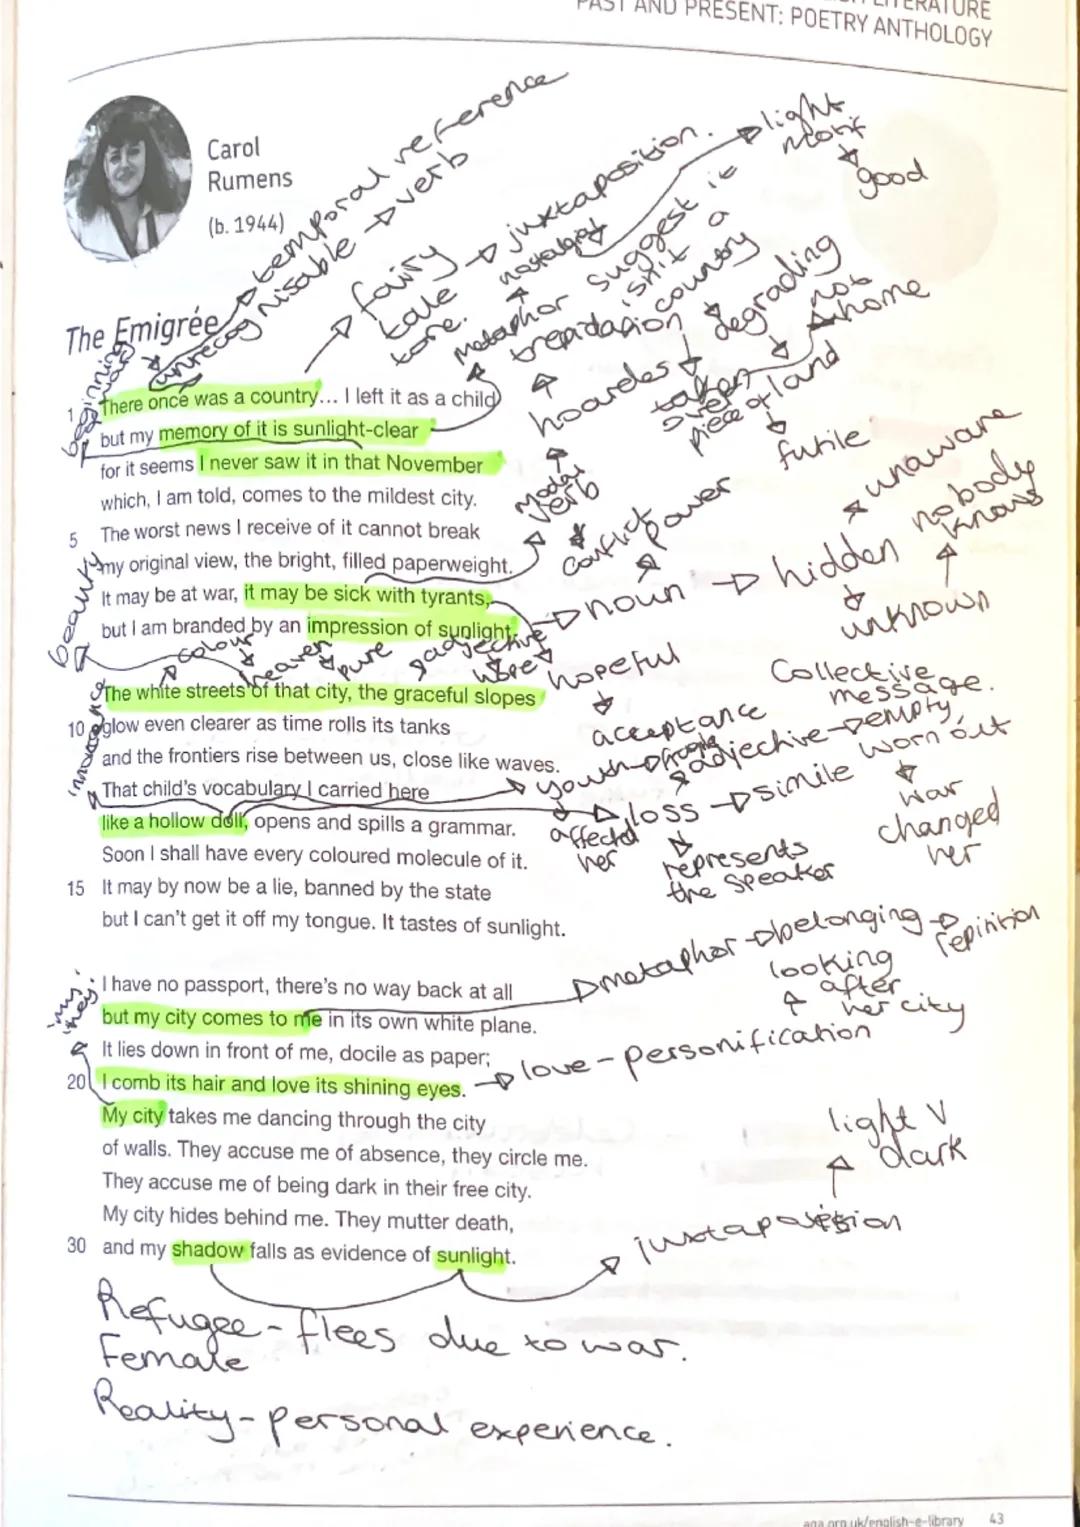 LITERATURE
PAST AND PRESENT: POETRY ANTHOLOGY
Carol
Rumens
(b. 1944)
temporal reference
unrecognisable verb
fairy
tale
tone.
juxtaposition.
nostalgia
metaphor
light
motif
good
suggest it
isn't a
country
trepidation
degrading
not
home
hoardes
taken
over
piece of land
futile
The Emigrée
beginning
1 There once was a country... I left it as a child
but my memory of it is sunlight-clear
for it seems I never saw it in that November
which, I am told, comes to the mildest city.
5 The worst news I receive of it cannot break
my original view, the bright, filled paperweight.
It may be at war, it may be sick with tyrants,
but I am branded by an impression of sunlight.
modal
verb
conflict
power
noun
hidden
unaware
nobody
knows
unknown
beauty
colour
heaven
pure
adjective
hopeful
acceptance
Collective
message.
The white streets of that city, the graceful slopes
10 glow even clearer as time rolls its tanks
and the frontiers rise between us, close like waves.
That child's vocabulary I carried here
like a hollow doll, opens and spills a grammar.
Soon I shall have every coloured molecule of it.
15 It may by now be a lie, banned by the state
but I can't get it off my tongue. It tastes of sunlight.
innocence
youth
fragile
adjective
empty,
worn out
affected
her
loss
simile
represents
the speaker
war
changed
her
I have no passport, there's no way back at all
but my city comes to me in its own white plane.
It lies down in front of me, docile as paper;
20 I comb its hair and love its shining eyes.
My city takes me dancing through the city
of walls. They accuse me of absence, they circle me.
They accuse me of being dark in their free city.
My city hides behind me. They mutter death,
30 and my shadow falls as evidence of sunlight.
metaphor belonging repinition
looking
after
her city
love - personification
light V
dark
juxtaposition
Refugee - flees due to war.
Female
Reality - personal experience.
aqa.org.uk/english-e-library 43